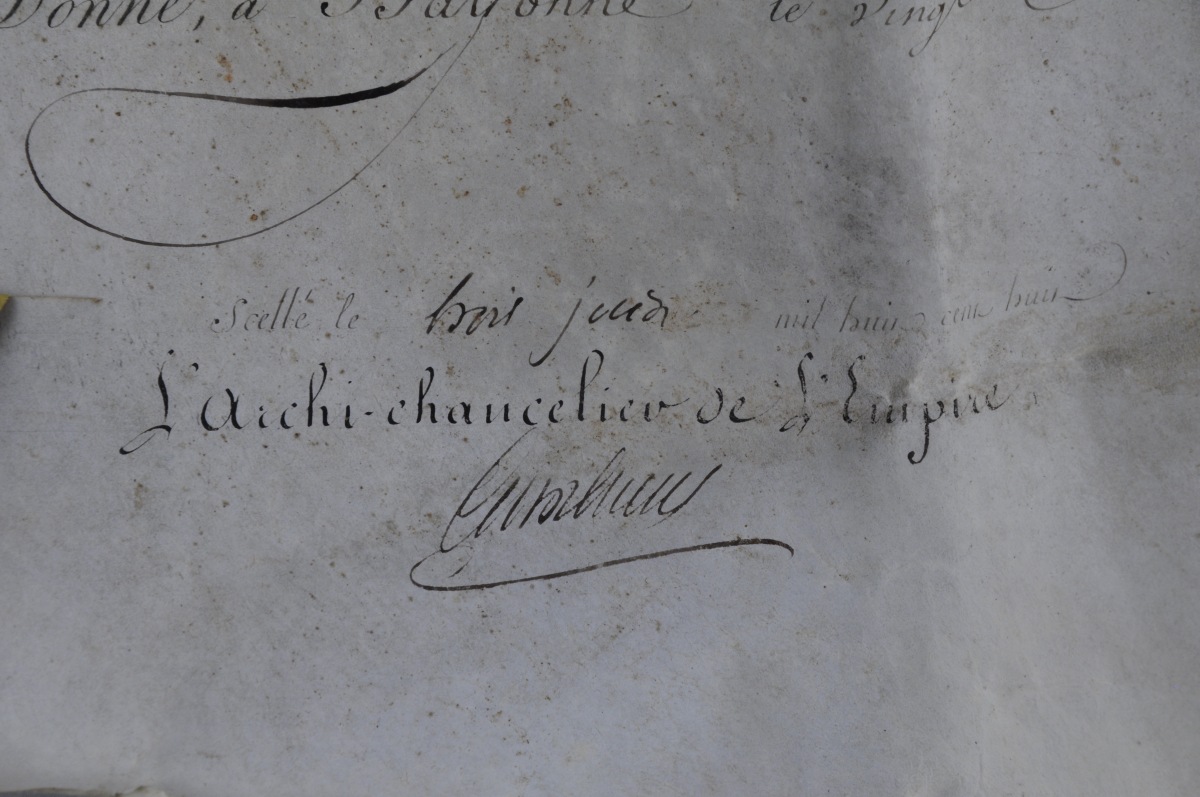 Donné, à Bayonne le vingt
Scellé le trois juin mil huit cent huit
L'Archi-chancelier de L'Empire
Cambacérès